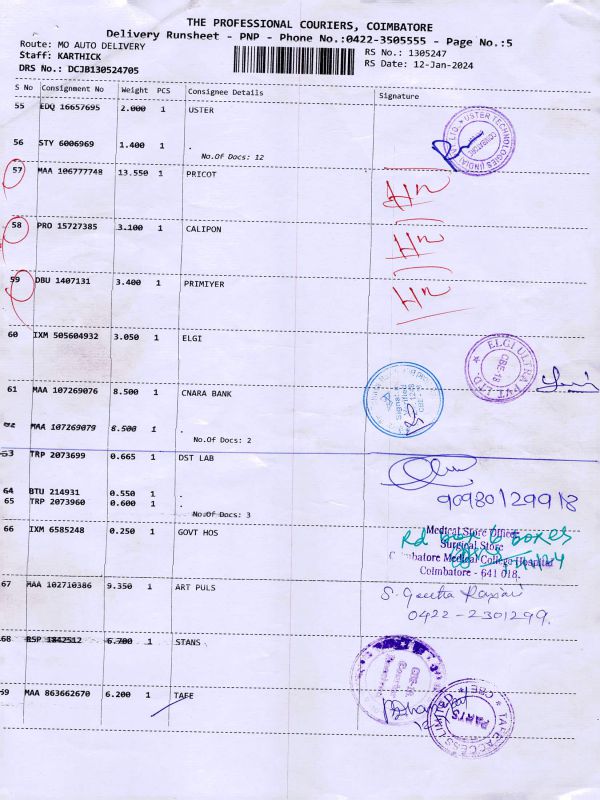 THE PROFESSIONAL COURIERS, COIMBATORE
Delivery Runsheet - PNP - Phone No.:0422-3505555 - Page No.:5
Route: MO AUTO DELIVERY
RS No.: 1305247
Staff: KARTHICK
RS Date: 12-Jan-2024
DRS No.: DCJB130524705
S No Consignment No Weight PCS Consignee Details Signature
55 EDQ 16657695 2.000 1 USTER
USTER TECHNOLOGIES (INDIA)
56 STY 6006969 1.400 1 .
No.Of Docs: 12
57 MAA 106777748 13.550 1 PRICOT
58 PRO 15727385 3.100 1 CALIPON
59 DBU 1407131 3.400 1 PRIMIYER
60 IXM 505604932 3.050 1 ELGI
ELGI ULTRA PVT LTD
CBE-18
61 MAA 107269076 8.500 1 CNARA BANK
62 MAA 107269079 8.500 1 .
No.Of Docs: 2
63 TRP 2073699 0.665 1 DST LAB
64 BTU 214931 0.550 1 .
65 TRP 2073960 0.600 1 .
No.Of Docs: 3
66 IXM 6585248 0.250 1 GOVT HOS
Medical Store Officer
Surgical Store
Coimbatore Medical College Hospital
Coimbatore - 641 018.
67 MAA 102710386 9.350 1 ART PULS
0422-2301299.
68 RSP 1842512 6.700 1 STANS
69 MAA 863662670 6.200 1 TAFE
PARTS